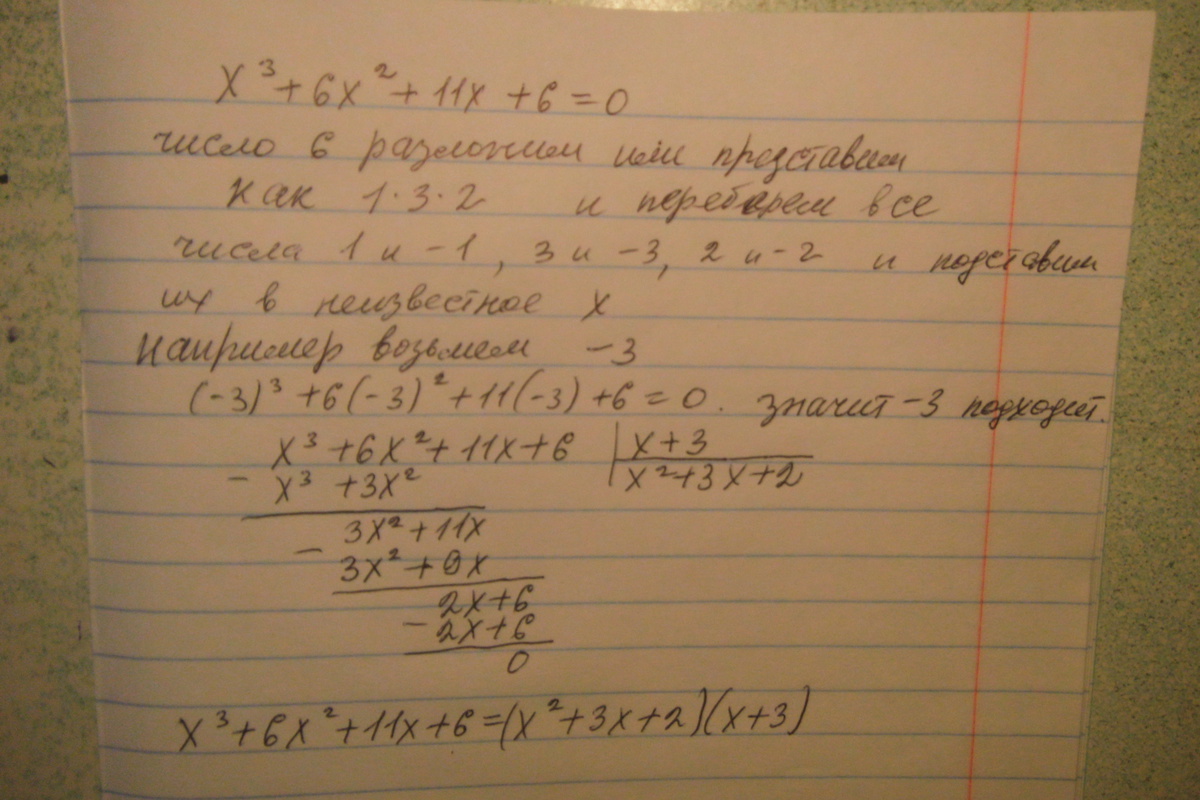 x³ + 6x² + 11x + 6 = 0
число 6 разложим или представим
как 1·3·2 и переберем все
числа 1 и -1, 3 и -3, 2 и -2 и подставим
их в неизвестное x
например возьмем -3
(-3)³ + 6(-3)² + 11(-3) + 6 = 0. значит -3 подходит.
x³ + 6x² + 11x + 6 | x + 3
- x³ + 3x² x² + 3x + 2
3x² + 11x
- 3x² + 9x
2x + 6
- 2x + 6
0
x³ + 6x² + 11x + 6 = (x² + 3x + 2)(x + 3)